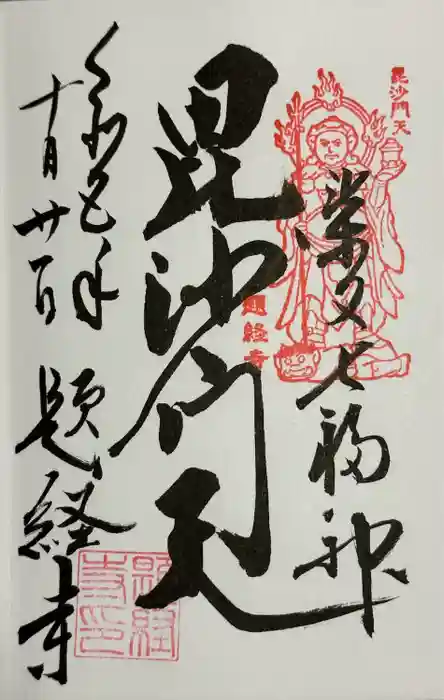 毘沙門天
柴又七福神
毘沙門天
題経寺
令和元年
十月廿一日
題経寺
題経寺印